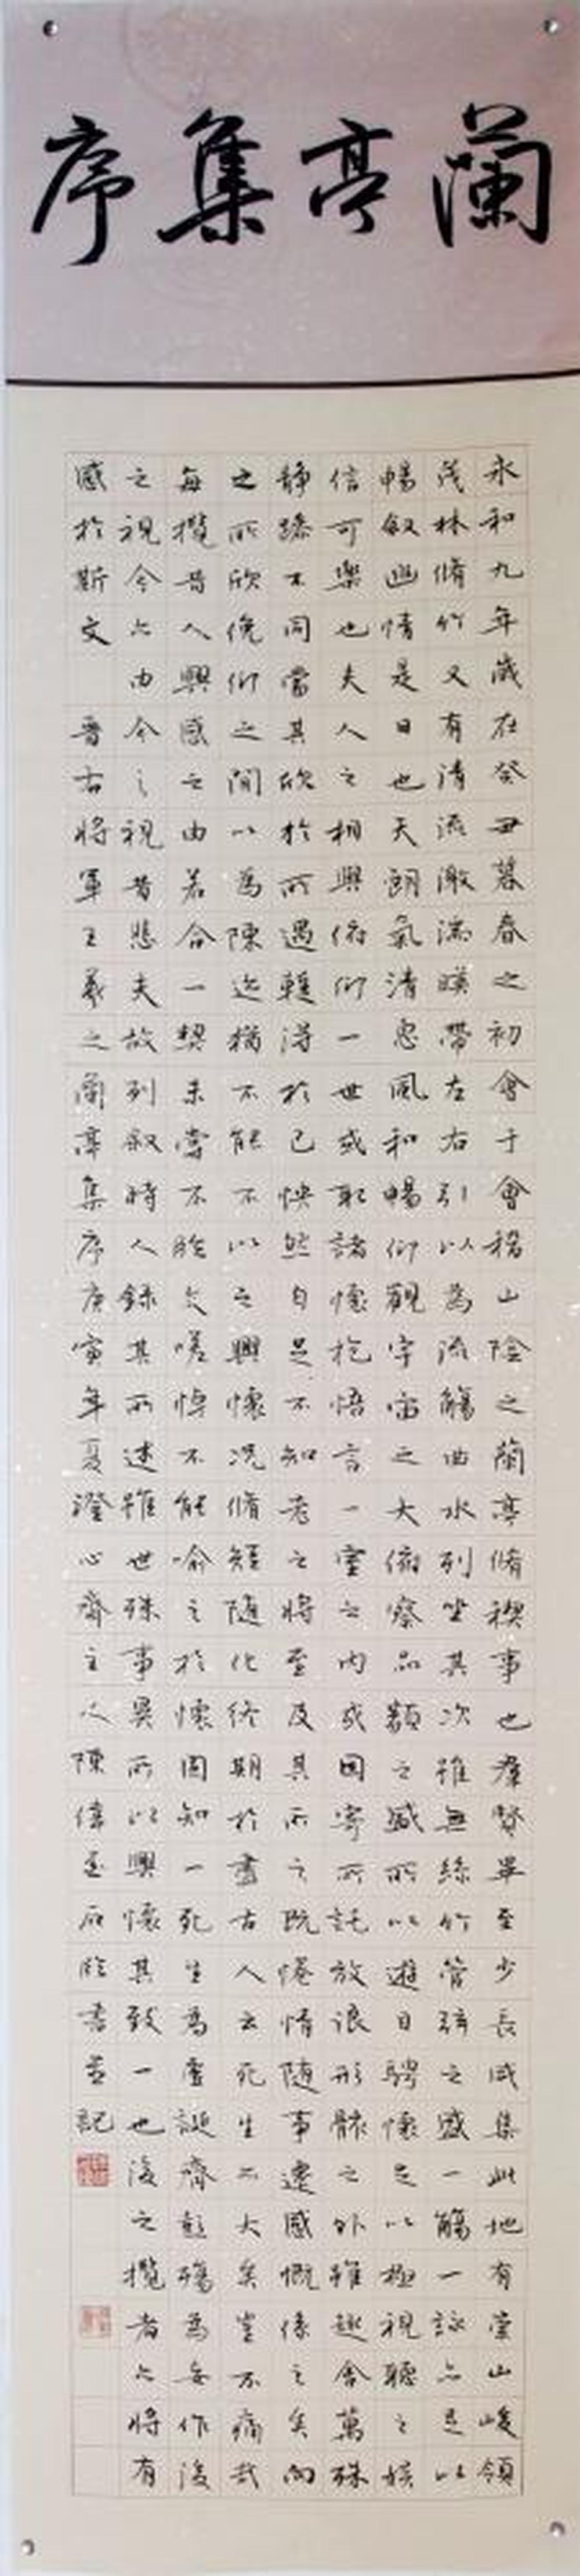 蘭亭集序
永和九年歲在癸丑暮春之初會于會稽山陰之蘭亭脩禊事也羣賢畢至少長咸集此地有崇山峻領
茂林脩竹又有清流激湍暎帶左右引以為流觴曲水列坐其次雖無絲竹管弦之盛一觴一詠亦足以
暢敘幽情是日也天朗氣清惠風和暢仰觀宇宙之大俯察品類之盛所以遊目騁懷足以極視聽之娛
信可樂也夫人之相與俯仰一世或取諸懷抱悟言一室之內或因寄所託放浪形骸之外雖趣舍萬殊
靜躁不同當其欣於所遇蹔得於己怏然自足不知老之將至及其所之既惓情隨事遷感慨係之矣向
之所欣俛仰之間以為陳迹猶不能不以之興懷況脩短隨化終期於盡古人云死生亦大矣豈不痛哉
每攬昔人興感之由若合一契未嘗不臨文嗟悼不能喻之於懷固知一死生為虛誕齊彭殤為妄作後
之視今亦由今之視昔悲夫故列敘時人錄其所述雖世殊事異所以興懷其致一也後之攬者亦將有
感於斯文 晉右將軍王羲之蘭亭集序庚寅年夏澄心齋主人陳偉臨書並記